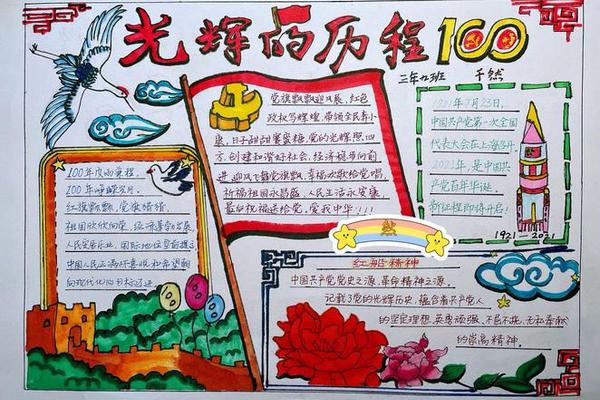 光辉的历程100
三年九班 千然
党旗飘飘迎风展,红色
政权写辉煌,带领全民奔小
康,日子甜甜赛蜜糖,党的光辉照四
方,创建和谐好社会,经济稳界向前
进,迎风飞舞党旗飘,幸福欢歌给党唱,
祈福祖国永昌盛,人民生活永安康,
最后祝福送给党,爱我中华!!!
1921年7月23日,
中国共产党第一次全国
代表大会在上海召开,
2021年,是中国共
产党百年华诞,
新征程即将开启!
1921—2021
100年度的里程,
100年峥嵘岁月,
红旗飘飘,党旗猎猎,
祖国欣欣向荣,经济蓬勃发展
人民安居乐业,国际地位显著提高
中国人民正满怀喜悦和希望朝
向现代化的目标迈进
红船精神
中国共产党党史之源,革命精神之源,
记载了党的光辉历史,蕴含着共产党人
的坚定理想,英勇顽强,不屈不挠,无私奉献
的崇高精神。